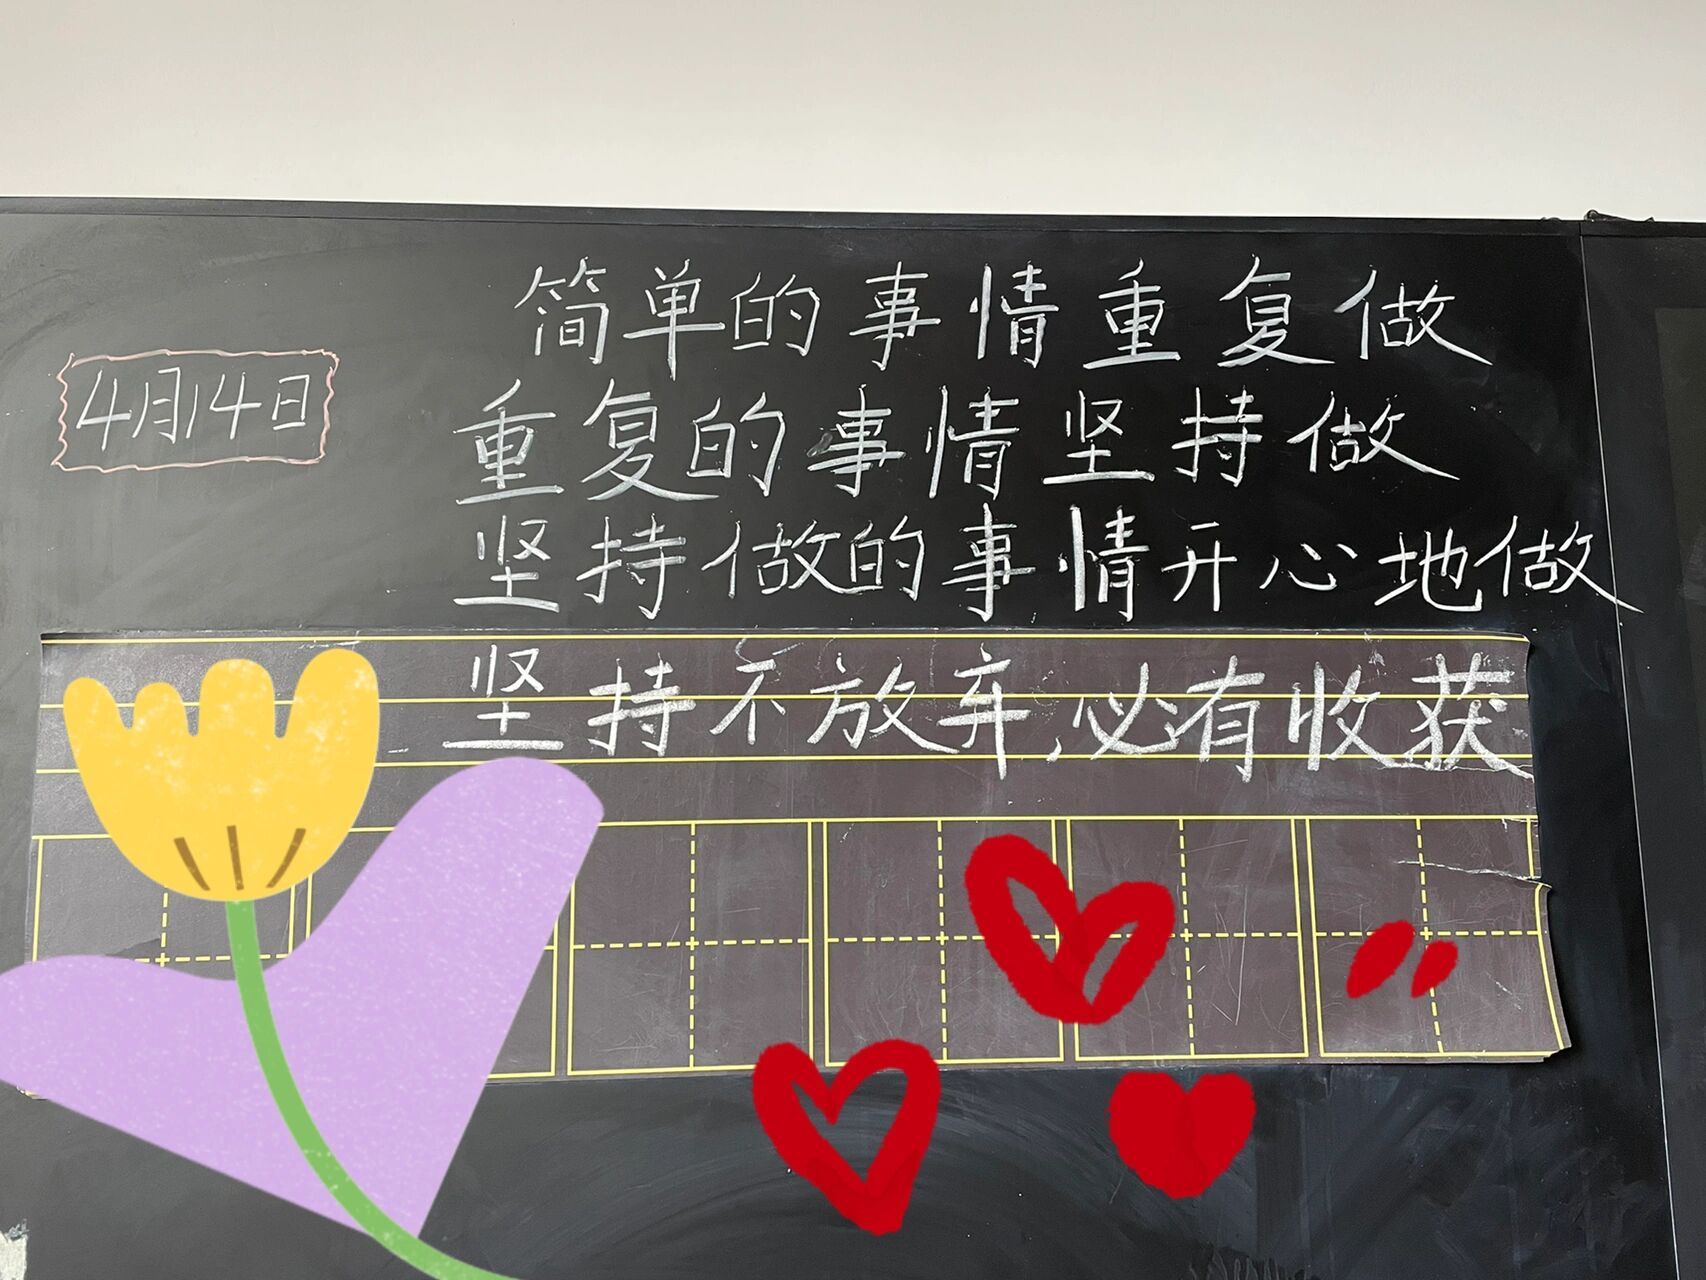 简单的事情重复做
4月14日
重复的事情坚持做
坚持做的事情开心地做
坚持不放弃,必有收获